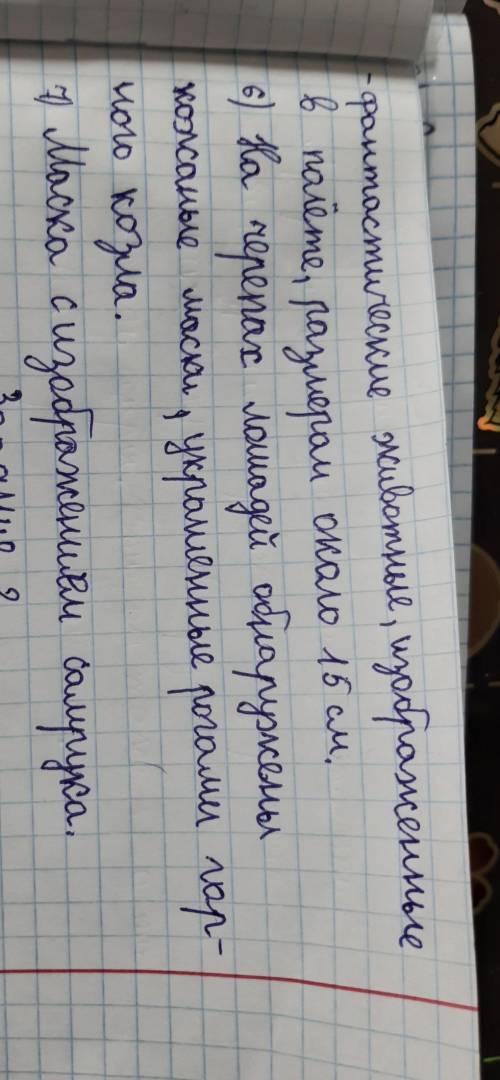 -фантастические животные, изображенные
в полёте, размером около 15 см.
6) На черепах лошадей обнаружены
кожаные маски, украшенные рогами гор-
ного козла.
7) Маска с изображением самрука.